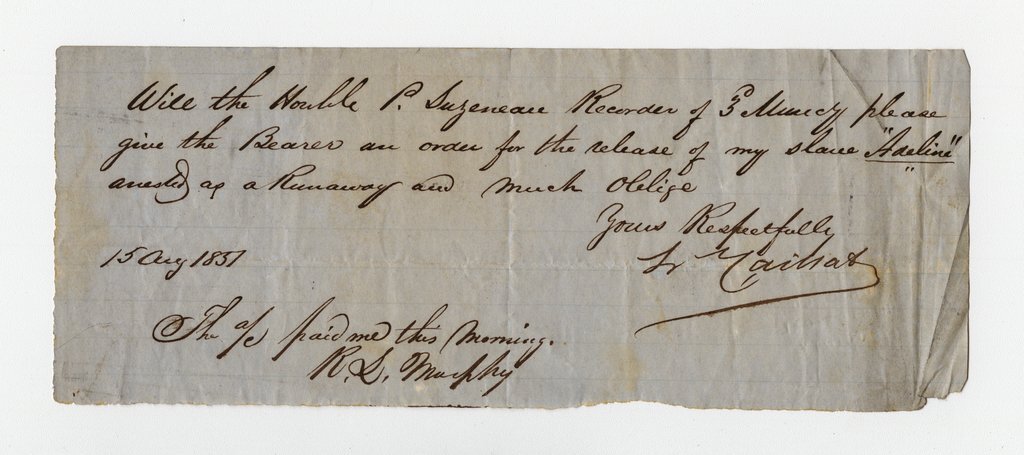 Will the Honble P. Suzeneau Recorder of 3d Muncy please
give the Bearer an order for the release of my slave "Adeline"
arrested as a Runaway and much Oblige
Yours Respectfully
15 Aug 1851
The a/c paid me this Morning.
R. S. Murphy